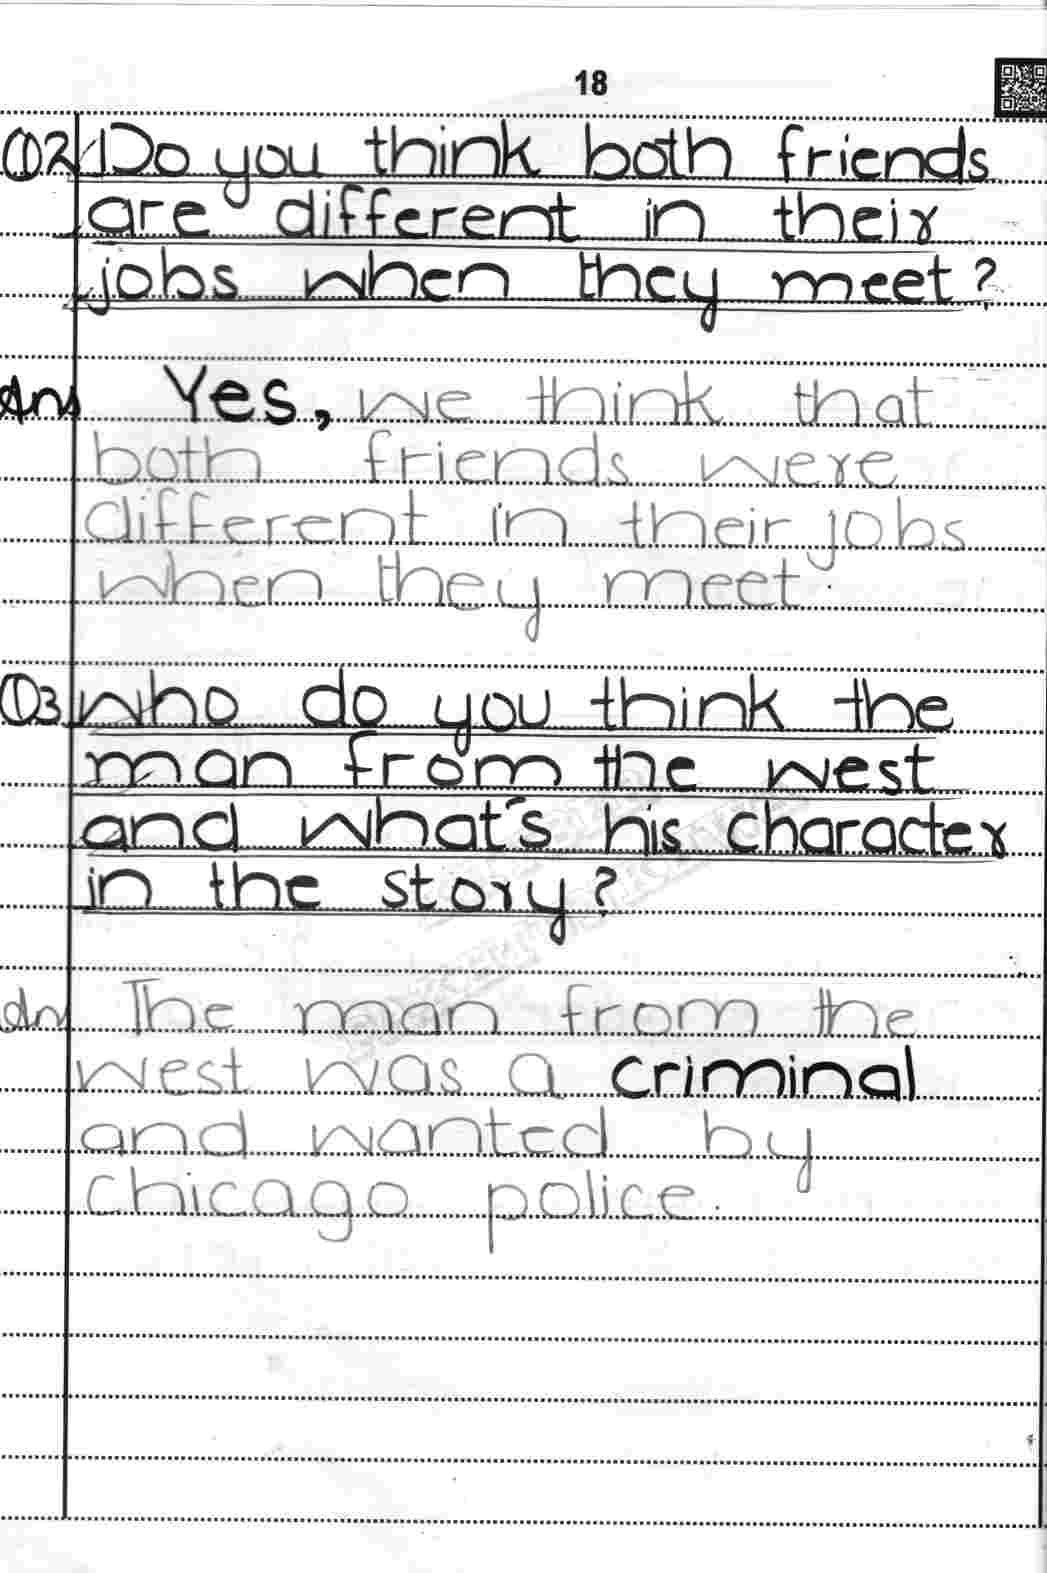 18
Q2 Do you think both friends
are different in their
jobs when they meet?
Ans Yes, we think that
both friends were
different in their jobs
when they meet.
Q3 Who do you think the
man from the west
and what's his character
in the story?
Ans The man from the
west was a criminal
and wanted by
chicago police.